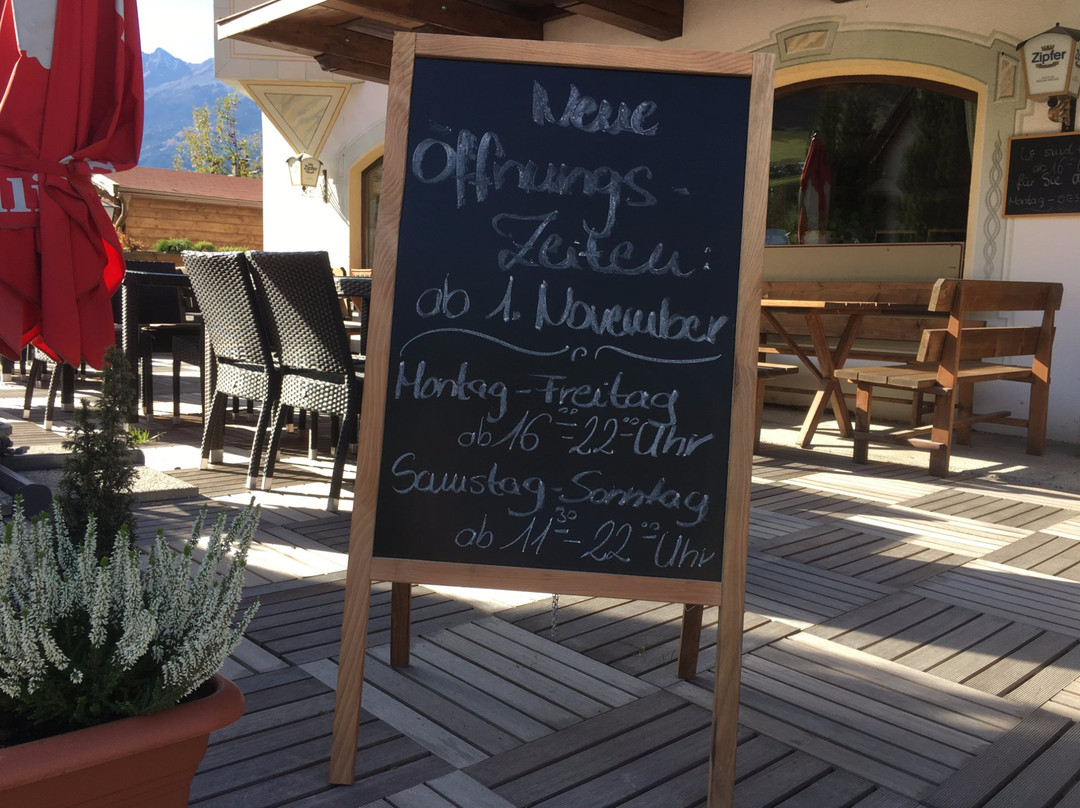 Neue
Öffnungs-
Zeiten:
ab 1. November
Montag - Freitag
ab 16⁰⁰ - 22⁰⁰ Uhr
Samstag - Sonntag
ab 11³⁰ - 22⁰⁰ Uhr
Zipfer
ab 16
für Sie d
Montag -